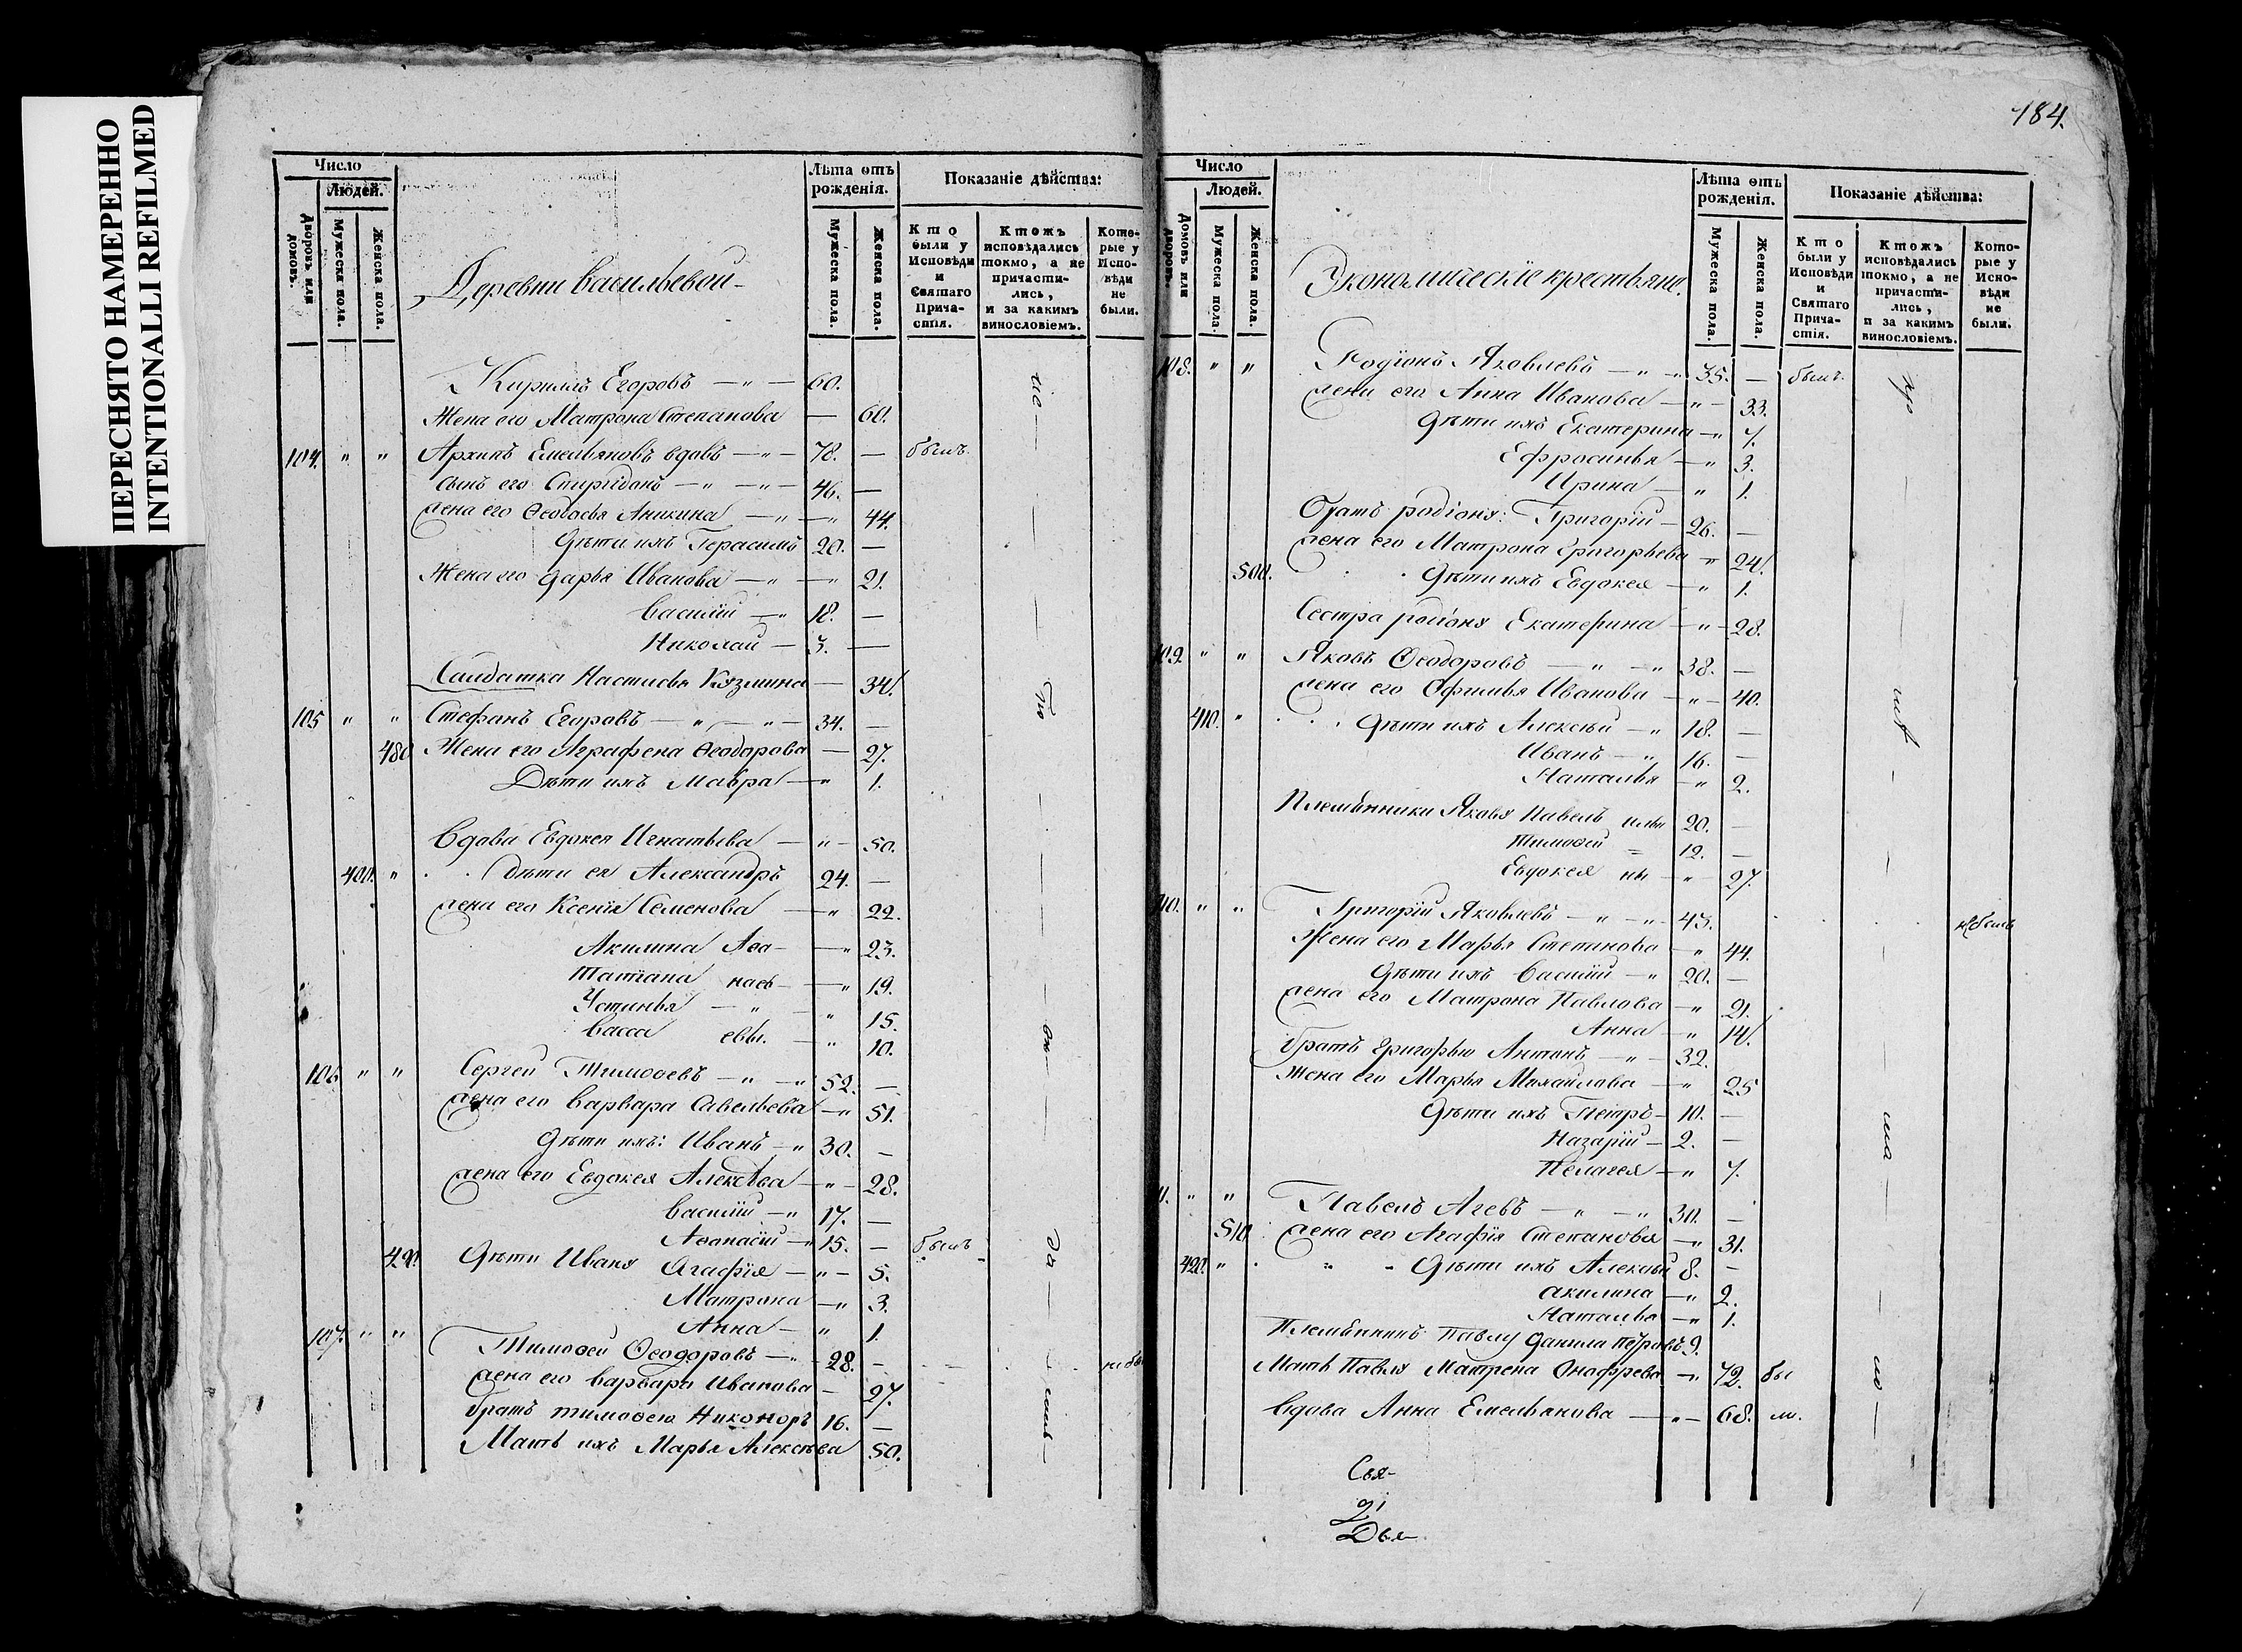 ПЕРЕСНЯТО НАМЕРЕННО
INTENTIONALLI REFILMED
184.
Число
Людей.
Дворовъ или домовъ.
Мужеска пола.
Женска пола.
Деревни Васильевой
Лѣта отъ рожденія.
Мужеска пола.
Женска пола.
Показаніе дѣйства:
Кто были у Исповѣди и Святаго Причастія.
Ктожъ исповѣдались токмо, а не причастились, и за какимъ винословіемъ.
Которые у Исповѣди не были.
Кирилъ Егоровъ — " — 60.
Жена его Матрона Степанова — 60.
104. " " Архипъ Емельяновъ вдовъ — " — 78. — былъ.
Сынъ его Спиридонъ — " — " — 46. —
Жена его Ѳеодосья Аникина — " — " 44.
Дѣти ихъ Герасимъ 20. —
Жена его Дарья Иванова — " — " 21.
Василій — " 18. —
Николай — 3. —
Салдатка Настасья Кузмина — 34.
105 " " Стефанъ Егоровъ — " — " — 34. —
480 Жена его Аграфена Ѳеодорова — 27.
Дѣти ихъ Мавра — " 1.
Вдова Евдокея Игнатьева — " — 50.
400. " Дѣти ея Александръ 24. —
Жена его Ксенія Семенова — " 22.
Акилина Аѳа- — " 23.
Татіана насъ- — " 19.
Устинья — " — " 15.
Васса евы. — " 10.
106 " " Сергей Тимоѳеевъ — " — " 52. —
Жена его Варвара Савельева — " 51.
Дѣти ихъ: Иванъ — " 30. —
Жена его Евдокея Алексѣева — " — 28.
Василій — " 17. —
Аѳанасій — " 15. — былъ
490. Дѣти Ивана Агафія — " — 5.
Матрона — " 3.
Анна — " 1.
107. " " Тимоѳей Ѳеодоровъ — " — 28. — не бы
Жена его Варвара Иванова — 27.
Братъ Тимоѳею Никоноръ 16. —
Мать ихъ Марья Алексѣева 50.
Число
Людей.
Домовъ или дворовъ.
Мужеска пола.
Женска пола.
Экономическіе крестьяне.
Лѣта отъ рожденія.
Мужеска пола.
Женска пола.
Показаніе дѣйства:
Кто были у Исповѣди и Святаго Причастія.
Ктожъ исповѣдались токмо, а не причастились, и за какимъ винословіемъ.
Которые у Исповѣди не были.
108. " " Родіонъ Яковлевъ — " — " 35. — былъ.
Жена его Анна Иванова — " — 33.
Дѣти ихъ Екатерина — " 7.
Ефросинья — " 3.
Ирина — " 1.
Братъ Родіону: Григорій — 26. —
Жена его Матрона Григорьева — " 24.
500. Дѣти ихъ Евдокея — " 1.
Сестра Родіона Екатерина — " — 28.
109. " " Яковъ Ѳеодоровъ — " — " 38. —
Жена его Офимья Иванова — " — 40.
410. " Дѣти ихъ Алексѣй — " 18. —
Иванъ — " 16. —
Наталья — " 2.
Племянники Якова Павелъ ильи 20. —
Тимоѳей = 12. —
Евдокея ны — " — 27.
110. " " Григорій Яковлевъ — " — " 45. не былъ
Жена его Марья Степанова — " 44.
Дѣти ихъ Василій — " 20. —
Жена его Матрона Павлова — " 21.
Анна — " 14.
Братъ Григорью Антонъ — " — 32.
Жена его Марья Михайлова — " 25
Дѣти ихъ Петръ — 10. —
Назарій — 2. —
Пелагея — " 7.
" " Павелъ Агевъ — " — " 30. —
510 Жена его Агафія Степанова — " 31.
420. " Дѣти ихъ Алексѣй 8. —
Акилина — " 2.
Наталья — " 1.
Племянникъ Павлу Данила Петровъ 9.
Мать Павла Матрена Онофрева — " 72. бы
Вдова Анна Емельянова — " — 68. ла.
Свя-
Дья-